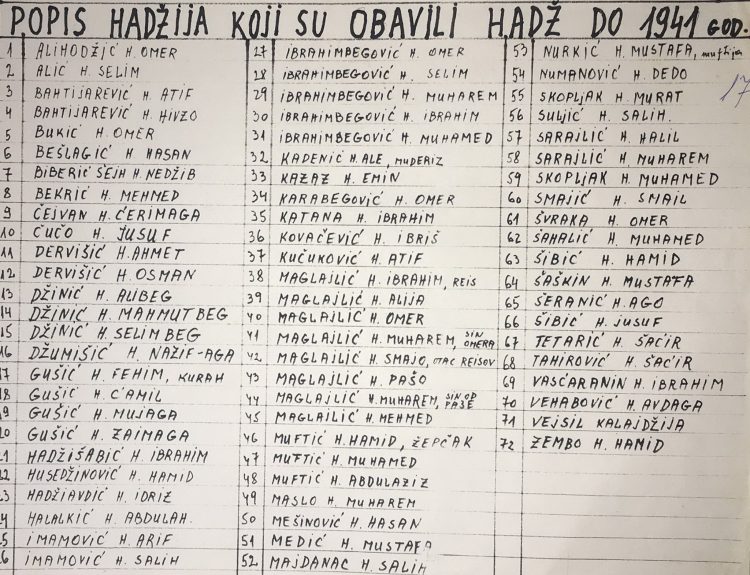 POPIS HADŽIJA KOJI SU OBAVILI HADŽ DO 1941 GOD.
1 ALIHODŽIĆ H. OMER
2 ALIĆ H. SELIM
3 BAHTIJAREVIĆ H. ATIF
4 BAHTIJAREVIĆ H. HIVZO
5 BUKIĆ H. OMER
6 BEŠLAGIĆ H HASAN
7 BIBERIĆ ŠEJH H. NEDŽIB
8 BEKRIĆ H. MEHMED
9 ČEJVAN H. ĆERIMAGA
10 ĆUĆO H. JUSUF
11 DERVIŠIĆ H. AHMET
12 DERVIŠIĆ H OSMAN
13 DŽINIĆ H. ALIBEG
14 DŽINIĆ H. MAHMUTBEG
15 DŽINIĆ H. SELIMBEG
16 DŽUMIŠIĆ H NAZIF-AGA
17 GUŠIĆ H. FEHIM, KURAH
18 GUŠIĆ H ĆAMIL
19 GUŠIĆ H. MUJAGA
20 GUŠIĆ H. ZAIMAGA
21 HADŽIŠABIĆ H. IBRAHIM
22 HUSEDŽINOVIĆ H. HAMID
23 HADŽIAVDIĆ H. IDRIZ
24 HALALKIĆ H. ABDULAH.
25 IMAMOVIĆ H. ARIF
26 IMAMOVIĆ H. SALIH
27 IBRAHIMBEGOVIĆ H. OMER
28 IBRAHIMBEGOVIĆ H. SELIM
29 IBRAHIMBEGOVIĆ H. MUHAREM
30 IBRAHIMBEGOVIĆ H. IBRAHIM
31 IBRAHIMBEGOVIĆ H. MUHAMED
32 KADENIĆ H. ALE, MUDERIZ
33 KAZAZ H. EMIN
34 KARABEGOVIĆ H. OMER
35 KATANA H. IBRAHIM
36 KOVAČEVIĆ H. IBRIŠ
37 KUČUKOVIĆ H. ATIF
38 MAGLAJLIĆ H. IBRAHIM, REIS
39 MAGLAJLIĆ H. ALIJA
40 MAGLAJLIĆ H. OMER
41 MAGLAJLIĆ H. MUHAREM, SIN OMERA
42 MAGLAJLIĆ H. SMAJO, OTAC REISOV
43 MAGLAJLIĆ H. PAŠO
44 MAGLAJLIĆ H. MUHAREM, SIN OD PAŠE
45 MAGLAJLIĆ H. MEHMED
46 MUFTIĆ H. HAMID, ŽEPČAK
47 MUFTIĆ H. MUHAMED
48 MUFTIĆ H. ABDULAZIZ
49 MASLO H. MUHAREM
50 MEŠINOVIĆ H. HASAN
51 MEDIĆ H. MUSTAFA
52 MAJDANAC H. SALIH
53 NURKIĆ H. MUSTAFA, muftija
54 NUMANOVIĆ H. DEDO
55 SKOPLJAK H. MURAT
56 SULJIĆ H. SALIH.
57 SARAJLIĆ H. HALIL
58 SARAJLIĆ H. MUHAREM
59 SKOPLJAK H. MUHAMED
60 SMAJIĆ H. SMAIL
61 ŠVRAKA H. OMER
62 ŠAHALIĆ H. MUHAMED
63 ŠIBIĆ H. HAMID
64 ŠAŠKIN H. MUSTAFA
65 ŠERANIĆ H. AGO
66 ŠIBIĆ H. JUSUF
67 TETARIĆ H. ŠAĆIR
68 TAHIROVIĆ H. ŠAĆIR
69 VASĆARANIN H. IBRAHIM
70 VEHABOVIĆ H. AVDAGA
71 VEJSIL KALAJDŽIJA
72 ZEMBO H. HAMID
17